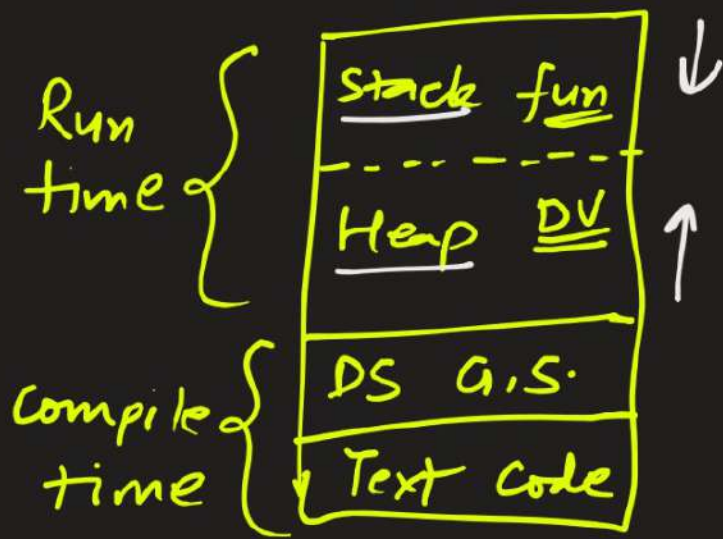 Run
time
Stack fun
Heap DV
Compile
time
DS G.S.
Text Code